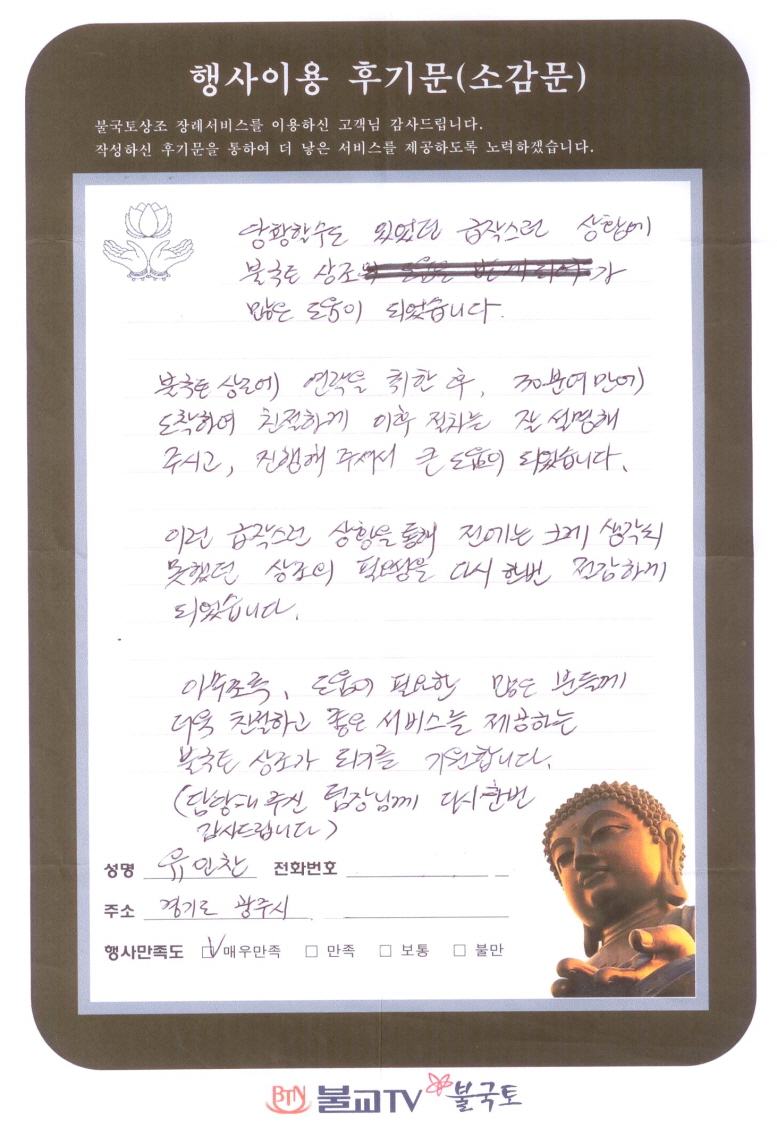 행사이용 후기문(소감문)
불국토상조 장례서비스를 이용하신 고객님 감사드립니다.
작성하신 후기문을 통하여 더 낳은 서비스를 제공하도록 노력하겠습니다.
당황할수도 있었던 급작스런 상황에
불국토 상조가
많은 도움이 되었습니다.
불국토 상조에 연락을 취한 후, 30분여 만에
도착하여 친절하게 이후 절차는 잘 설명해
주시고, 진행해 주셔서 큰 도움이 되었습니다.
이런 급작스런 상황을 통해 전에는 크게 생각치
못했던 상조의 필요성을 다시 한번 절감하게
되었습니다.
아무쪼록, 도움이 필요한 많은 분들께
더욱 친절하고 좋은 서비스를 제공하는
불국토 상조가 되기를 기원합니다.
(담당해 주신 팀장님께 다시한번
감사드립니다)
성명 유인찬 전화번호
주소 경기도 광주시
행사만족도 매우만족 만족 보통 불만
BTN 불교TV 불국토